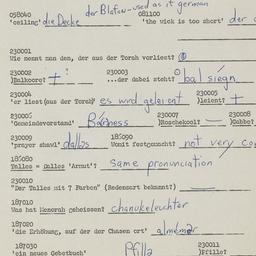 der Blofon-used as it german
058040 081100
'ceiling' die Decke 'the tick is too short' der
230001
Wie nennt man den, der aus der Torah vorliest?
230002 230003
Balkore? + ...der dabei steht? bal siegn
230004 230005
'er liest (aus der Torah)' es wird geleient leient? +
230006 230007 230008
'Gemeindevorstand' Barness Roschekool? — Gabbe?
230009 185090
'prayer shawl' dallos Womit festgemacht? not very co
185080
Talles = Dalles 'Armut'? same pronunciation
230010
"Der Talles mit 7 Farben" (Redensart bekannt?) —
187010
Was hat Menorah geheissen? chanukeleuchter
187020
'die Erhöhung, auf der der Chasen ort' almemar
187030 230011
'ein neues Gebetbuch' Pfille Pfille?